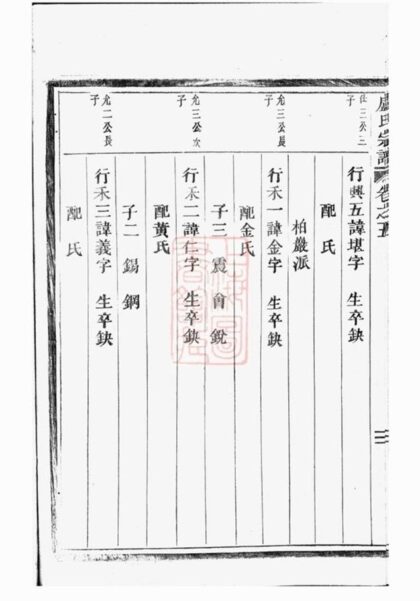 盧氏宗譜 卷之五
仕三公三子
行興五諱堪字 生卒缺
配 氏
柏嚴派
允三公長子
行禾一諱金字 生卒缺
配金氏
子三 震 會 銳
允三公次子
行禾二諱仁字 生卒缺
配黃氏
子二 錫 鋼
允二公長子
行禾三諱義字 生卒缺
配 氏